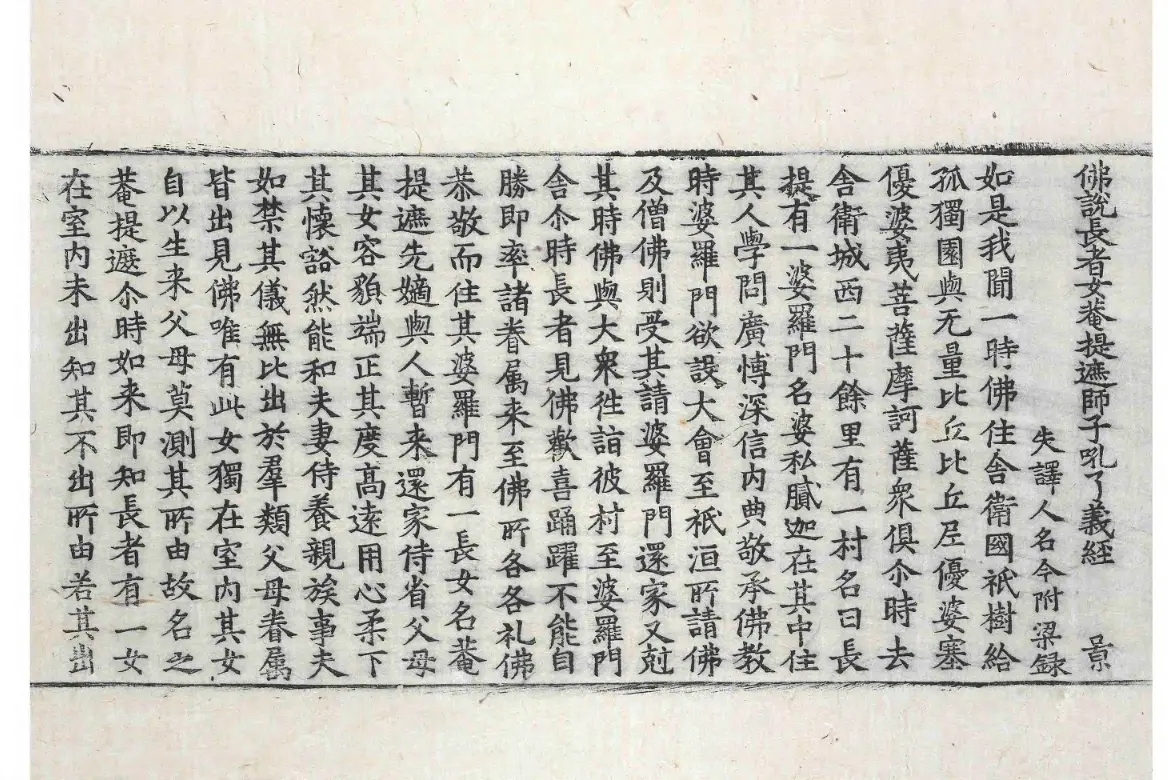 佛說長者女菴提遮師子吼了義經 景
失譯人名今附梁録
如是我聞一時佛住舍衛國祇樹給
孤獨園與无量比丘比丘尼優婆塞
優婆夷菩薩摩訶薩衆俱尒時去
舍衛城西二十餘里有一村名曰長
提有一婆羅門名婆私膩迦在其中住
其人學問廣愽深信内典敬承佛教
時婆羅門欲設大會至祇洹所請佛
及僧佛則受其請婆羅門還家又尅
其時佛與大衆徃詣彼村至婆羅門
舍尒時長者見佛歡喜踊躍不能自
勝即率諸眷属来至佛所各各礼佛
恭敬而住其婆羅門有一長女名菴
提遮先嫡與人暫来還家侍省父母
其女容貌端正其度高遠用心柔下
其懐豁然能和夫妻侍養親族事夫
如禁其儀無比出於羣類父母眷属
皆出見佛唯有此女獨在室内其女
自以生来父母莫測其所由故名之
菴提遮尒時如来即知長者有一女
在室内未出知其不出所由若其出